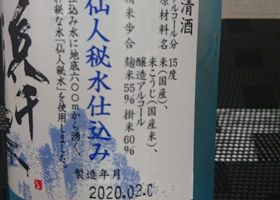 清酒
アルコール分 15度
原材料名 米(国産)、
米こうじ(国産米)、
醸造アルコール
精米歩合 麹米55% 掛米60%
仙人秘水仕込み
仕込み水に地底六〇〇mから湧く、
な水「仙人秘水」を使用しました。
製造年月
2020.02.